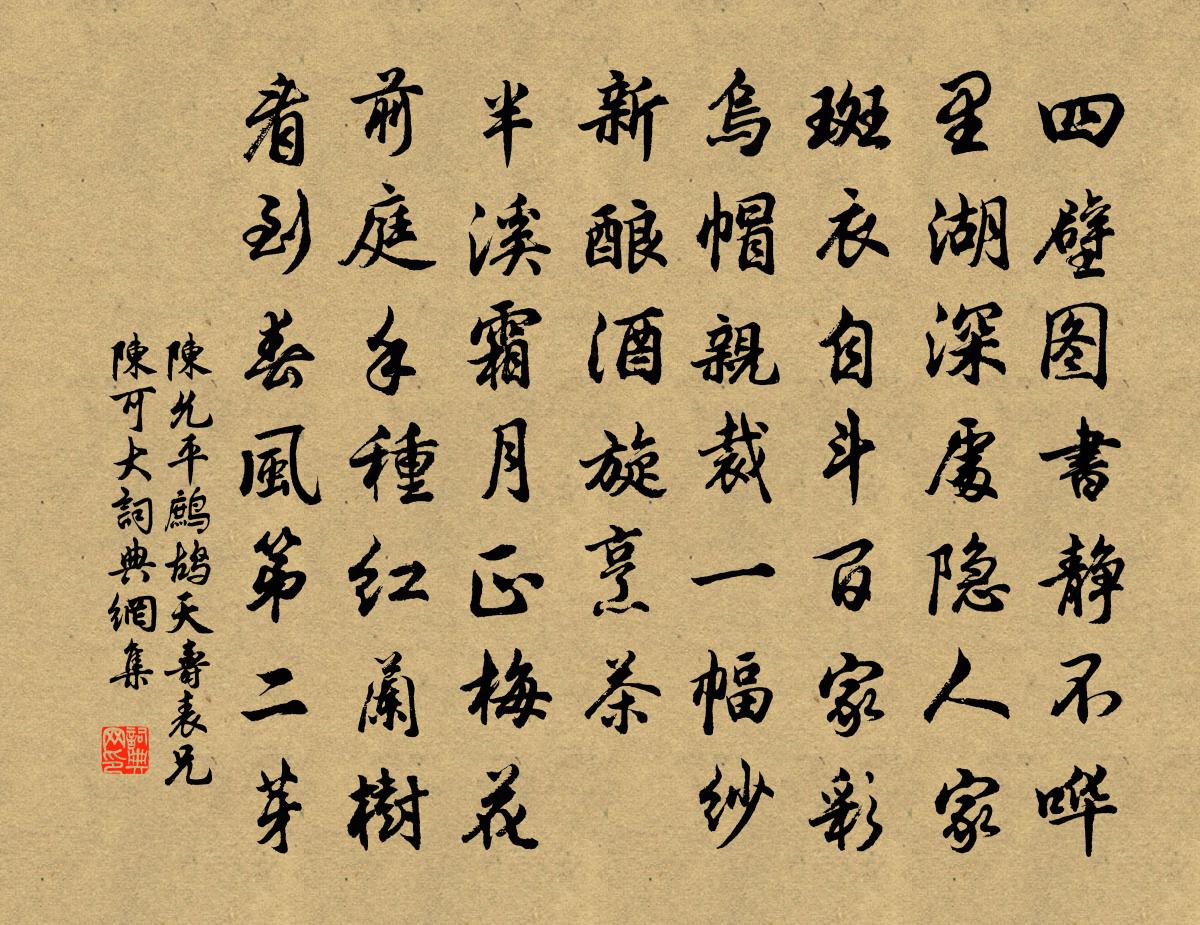 四壁图書静不哗
里湖深處隐人家
斑衣自斗百家彩
烏帽親裁一幅紗
新酿酒旋烹茶
半溪霜月正梅花
前庭手種红蘭樹
看到春風第二芽
陳允平鷓鴣天壽表兄
陳可大詞典網集
詞典网印